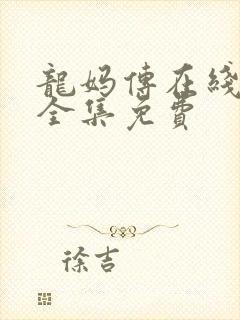 龍妈傳在綫
全集免費
徐吉